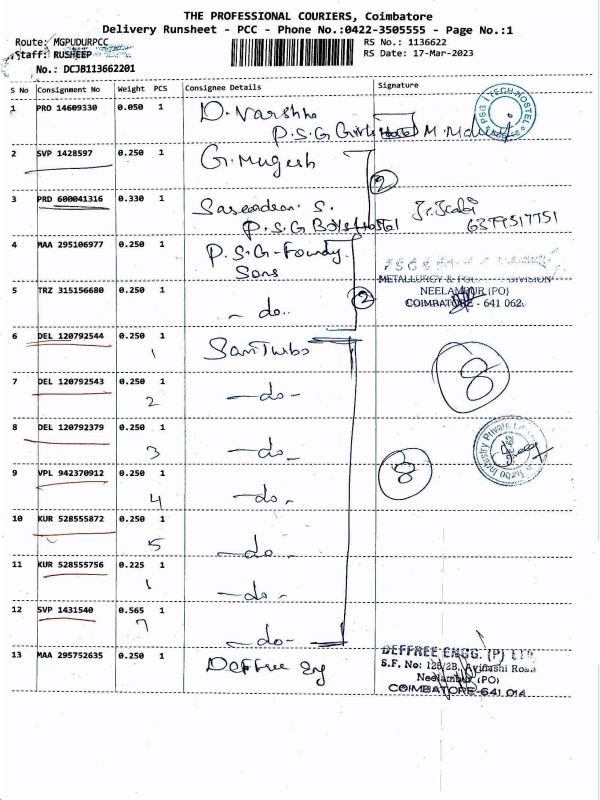 THE PROFESSIONAL COURIERS, Coimbatore
Delivery Runsheet - PCC - Phone No.:0422-3505555 - Page No.:1
Route: MGPUDURPCC
Staff: RUSHEEP
No.: DCJB113662201
RS No.: 1136622
RS Date: 17-Mar-2023
S No Consignment No Weight PCS Consignee Details Signature
1 PRO 14609330 0.050 1 D. Varshha
P.S.G Girls Hostel
PSG I TECH HOSTEL
2 SVP 1428597 0.250 1 G. Mugesh
2
3 PRD 600041316 0.330 1 S.
P.S.G Boys Hostel
6379517751
4 MAA 295106977 0.250 1 P.S.G-Foundy
Sons
METALLURGY & DIVISION
NEELAMBUR (PO)
COIMBATORE - 641 062.
5 TRZ 315156680 0.250 1 - do..
2
6 DEL 120792544 0.250 1 Sam Turbo
1
8
7 DEL 120792543 0.250 1 -do-
2
8 DEL 120792379 0.250 1 -do-
3
Industry Private
9 VPL 942370912 0.250 1 -do-
4
8
10 KUR 528555872 0.250 1 -do-
5
11 KUR 528555756 0.225 1 -do-
12 SVP 1431540 0.565 1 -do-
7
13 MAA 295752635 0.250 1 Deffree Eng
DEFFREE ENGG. (P) LTD
S.F. No: 128/2B, Avinashi Road
Neelambur (PO)
COIMBATORE-641 014